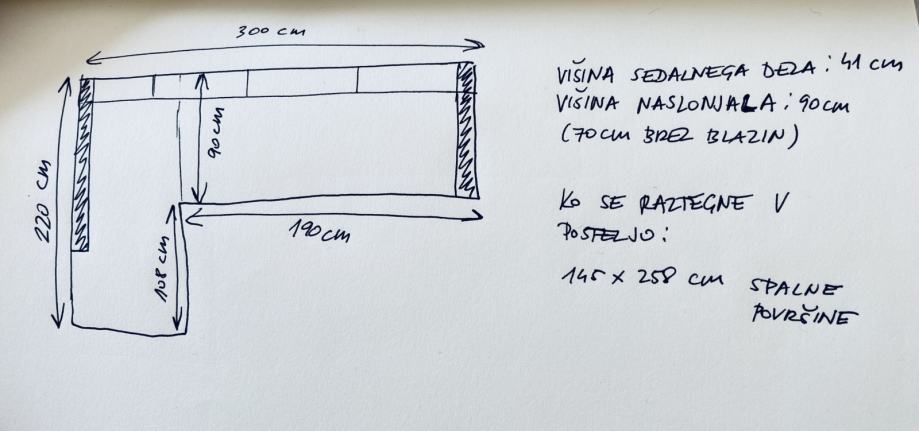 300 cm
220 cm
90cm
190cm
108 cm
VIŠINA SEDALNEGA DELA: 41 cm
VIŠINA NASLONJALA: 90cm
(70cm BREZ BLAZIN)
KO SE RAZTEGNE V
POSTELJO:
145 x 258 cm SPALNE
POVRŠINE